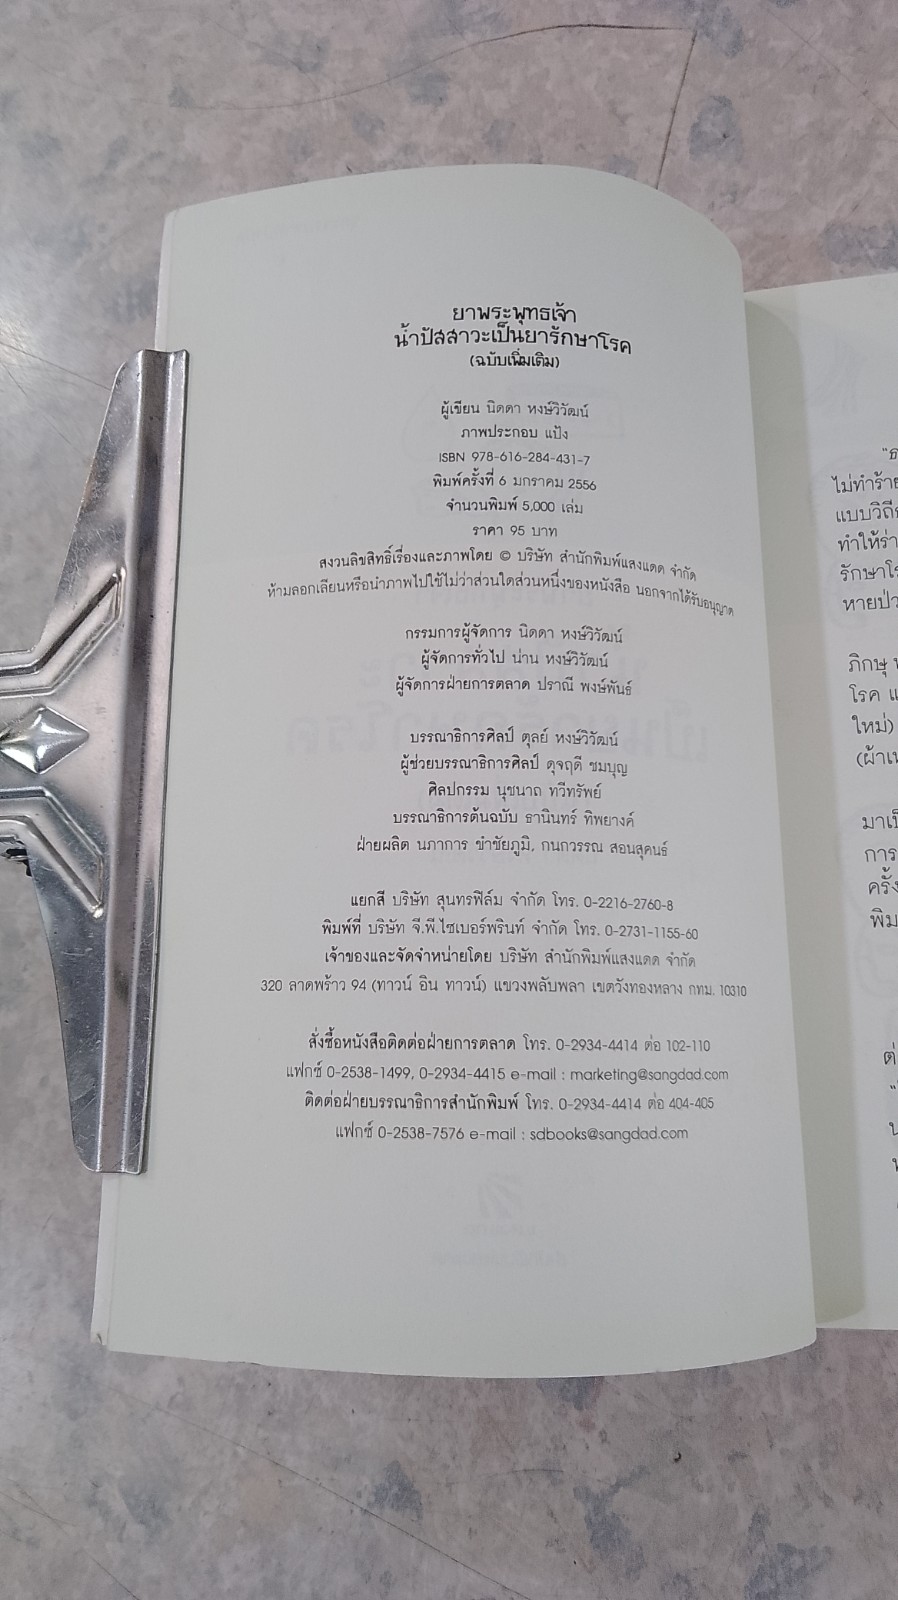 ยาพระพุทธเจ้า
น้ำปัสสาวะเป็นยารักษาโรค
(ฉบับเพิ่มเติม)
ผู้เขียน นิดดา หงษ์วิวัฒน์
ภาพประกอบ แป้ง
ISBN 978-616-284-431-7
พิมพ์ครั้งที่ 6 มกราคม 2556
จำนวนพิมพ์ 5,000 เล่ม
ราคา 95 บาท
สงวนลิขสิทธิ์เรื่องและภาพโดย © บริษัท สำนักพิมพ์แสงแดด จำกัด
ห้ามลอกเลียนหรือนำภาพไปใช้ไม่ว่าส่วนใดส่วนหนึ่งของหนังสือ นอกจากได้รับอนุญาต
กรรมการผู้จัดการ นิดดา หงษ์วิวัฒน์
ผู้จัดการทั่วไป น่าน หงษ์วิวัฒน์
ผู้จัดการฝ่ายการตลาด ปราณี พงษ์พันธ์
บรรณาธิการศิลป์ ตุลย์ หงษ์วิวัฒน์
ผู้ช่วยบรรณาธิการศิลป์ ดุจฤดี ชมบุญ
ศิลปกรรม นุชนาถ ทวีทรัพย์
บรรณาธิการต้นฉบับ ธานินทร์ ทิพยางค์
ฝ่ายผลิต นภาการ ขำชัยภูมิ, กนกวรรณ สอนสุคนธ์
แยกสี บริษัท สุนทรฟิล์ม จำกัด โทร. 0-2216-2760-8
พิมพ์ที่ บริษัท จี.พี.ไซเบอร์พรินท์ จำกัด โทร. 0-2731-1155-60
เจ้าของและจัดจำหน่ายโดย บริษัท สำนักพิมพ์แสงแดด จำกัด
320 ลาดพร้าว 94 (ทาวน์ อิน ทาวน์) แขวงพลับพลา เขตวังทองหลาง กทม. 10310
สั่งซื้อหนังสือติดต่อฝ่ายการตลาด โทร. 0-2934-4414 ต่อ 102-110
แฟกซ์ 0-2538-1499, 0-2934-4415 e-mail : marketing@sangdad.com
ติดต่อฝ่ายบรรณาธิการสำนักพิมพ์ โทร. 0-2934-4414 ต่อ 404-405
แฟกซ์ 0-2538-7576 e-mail : sdbooks@sangdad.com
ไม่ทำร้าย
แบบวิถี
ทำให้ร่า
รักษาโร
หายป่ว
ภิกษุ
โรค แ
ใหม่)
(ผ้าเ
มาเป็
การ
ครั้ง
พิม